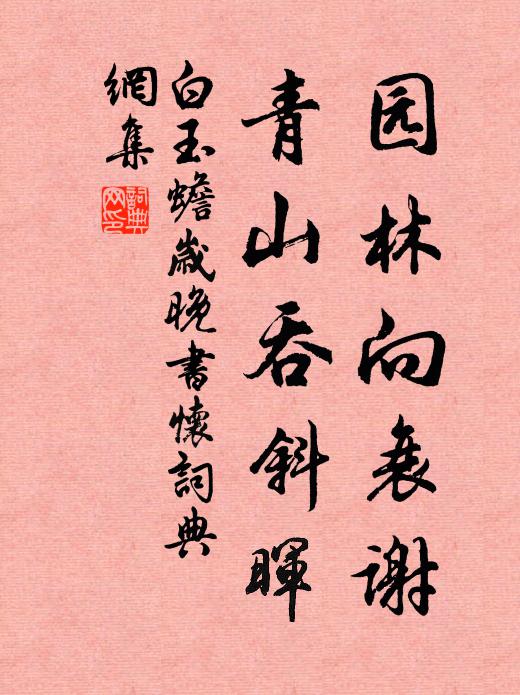 园林向衰谢
青山吞斜暉
白玉蟾歲晚書懷詞典
網集
詞典
网印